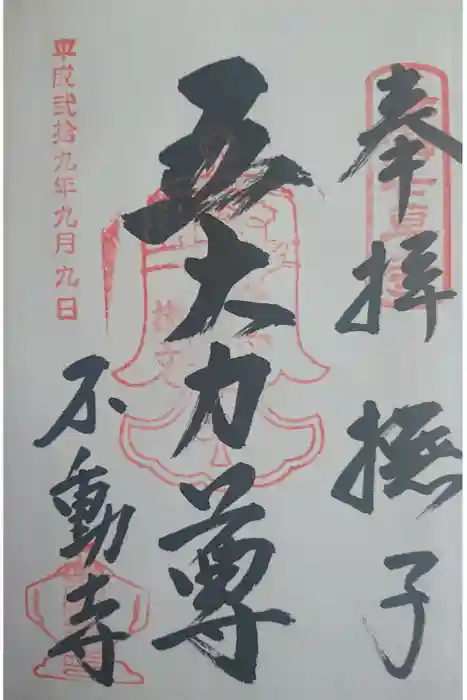 奉拝 撫子
五大力尊
平成弐拾九年九月九日
不動寺